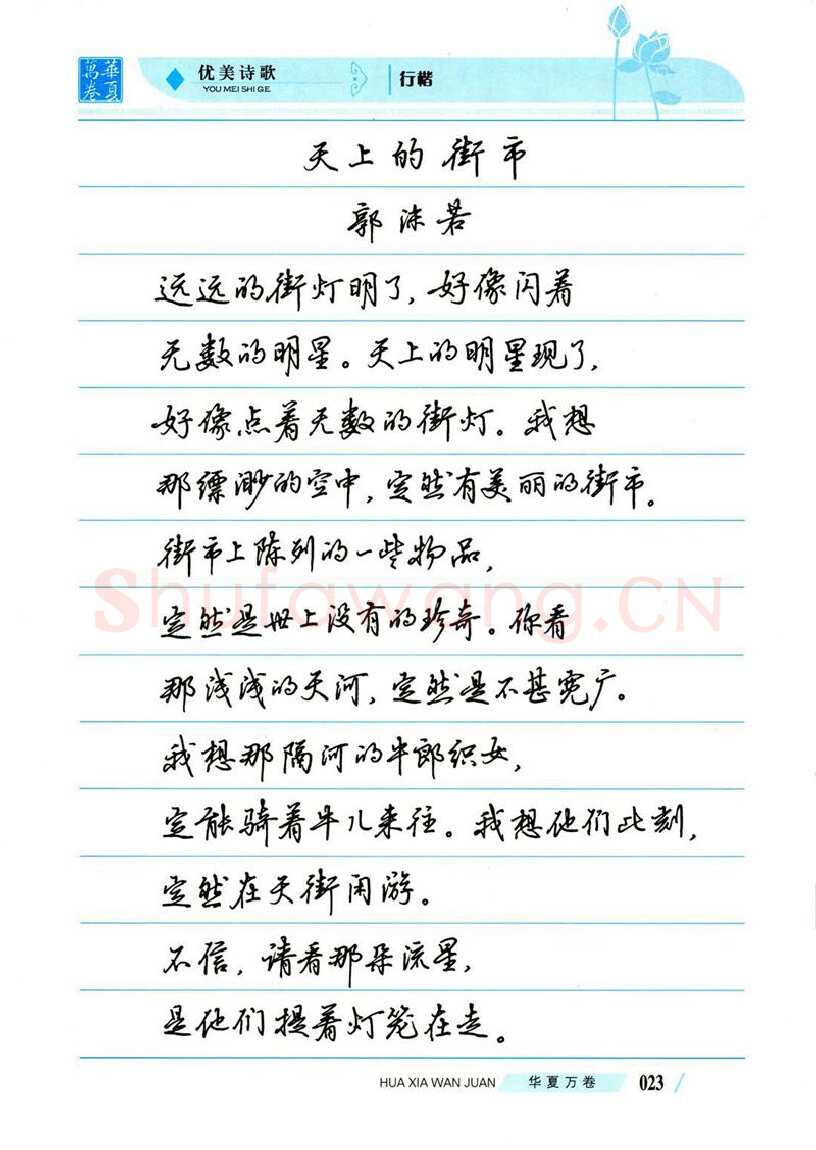 華夏萬卷
优美诗歌
YOU MEI SHI GE
行楷
天上的街市
郭沫若
远远的街灯明了，好像闪着
无数的明星。天上的明星现了，
好像点着无数的街灯。我想
那缥渺的空中，定然有美丽的街市。
街市上陈列的一些物品，
定然是世上没有的珍奇。你看
那浅浅的天河，定然是不甚宽广。
我想那隔河的牛郎织女，
定能骑着牛儿来往。我想他们此刻，
定然在天街闲游。
不信，请看那朵流星，
是他们提着灯笼在走。
Shufawang.CN
HUA XIA WAN JUAN
华夏万卷
023